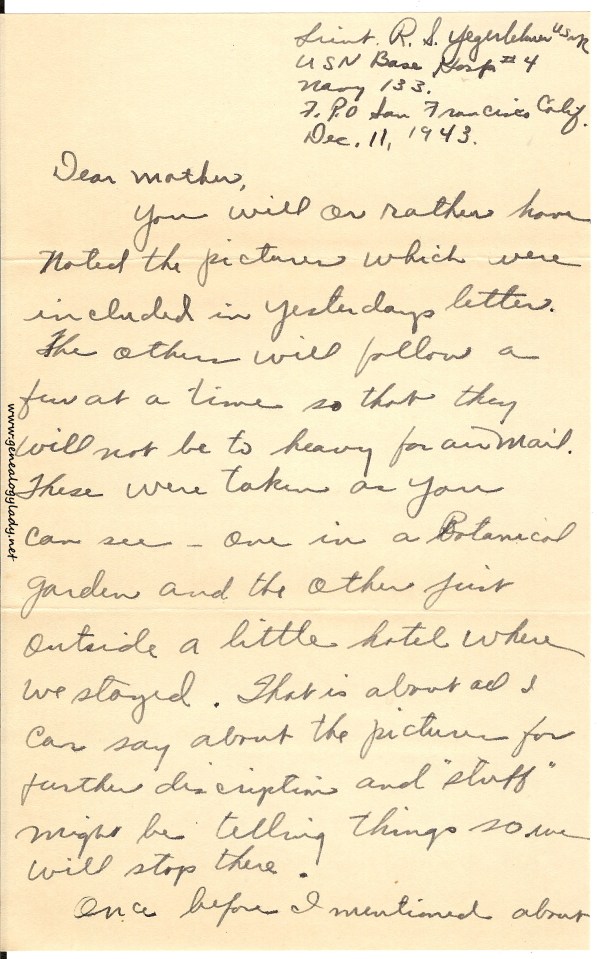 Lieut. R. S. Yegerlehner USNR
USN Base Hosp #4
Navy 133.
F.P.O San Francisco Calif.
Dec. 11, 1943.
Dear Mother,
You will or rather have
noted the pictures which were
included in yesterdays letter.
The others will follow a
few at a time so that they
will not be to heavy for air mail.
These were taken as you
can see – one in a Botanical
garden and the other just
outside a little hotel where
we stayed. That is about all I
can say about the pictures for
further discription and "stuff"
might be telling things so we
will stop there.
Once before I mentioned about
www.genealogylady.net